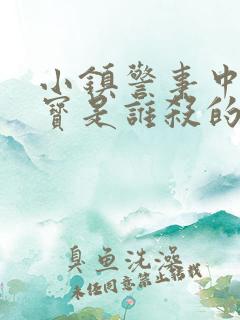 小鎮警事中
寶是誰殺的
臭魚洗澡
未经同意禁止转载